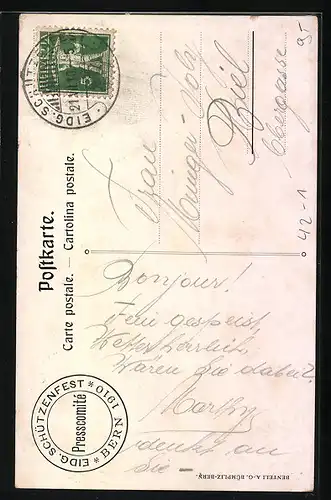 Postkarte.
Carte postale. — Cartolina postale.
EIDG. SCHÜTZENFEST
5
* EIDG. SCHÜTZENFEST * 1910
BERN
Presscomité
Frau
Biel
Obergasse
95
42-1
Bonjour!
Fein gespeist,
Wetter herrlich.
Wären Sie dabei?
Marthy
denkt an
Sie —
BENTELI A.-G. BÜMPLIZ-BERN.